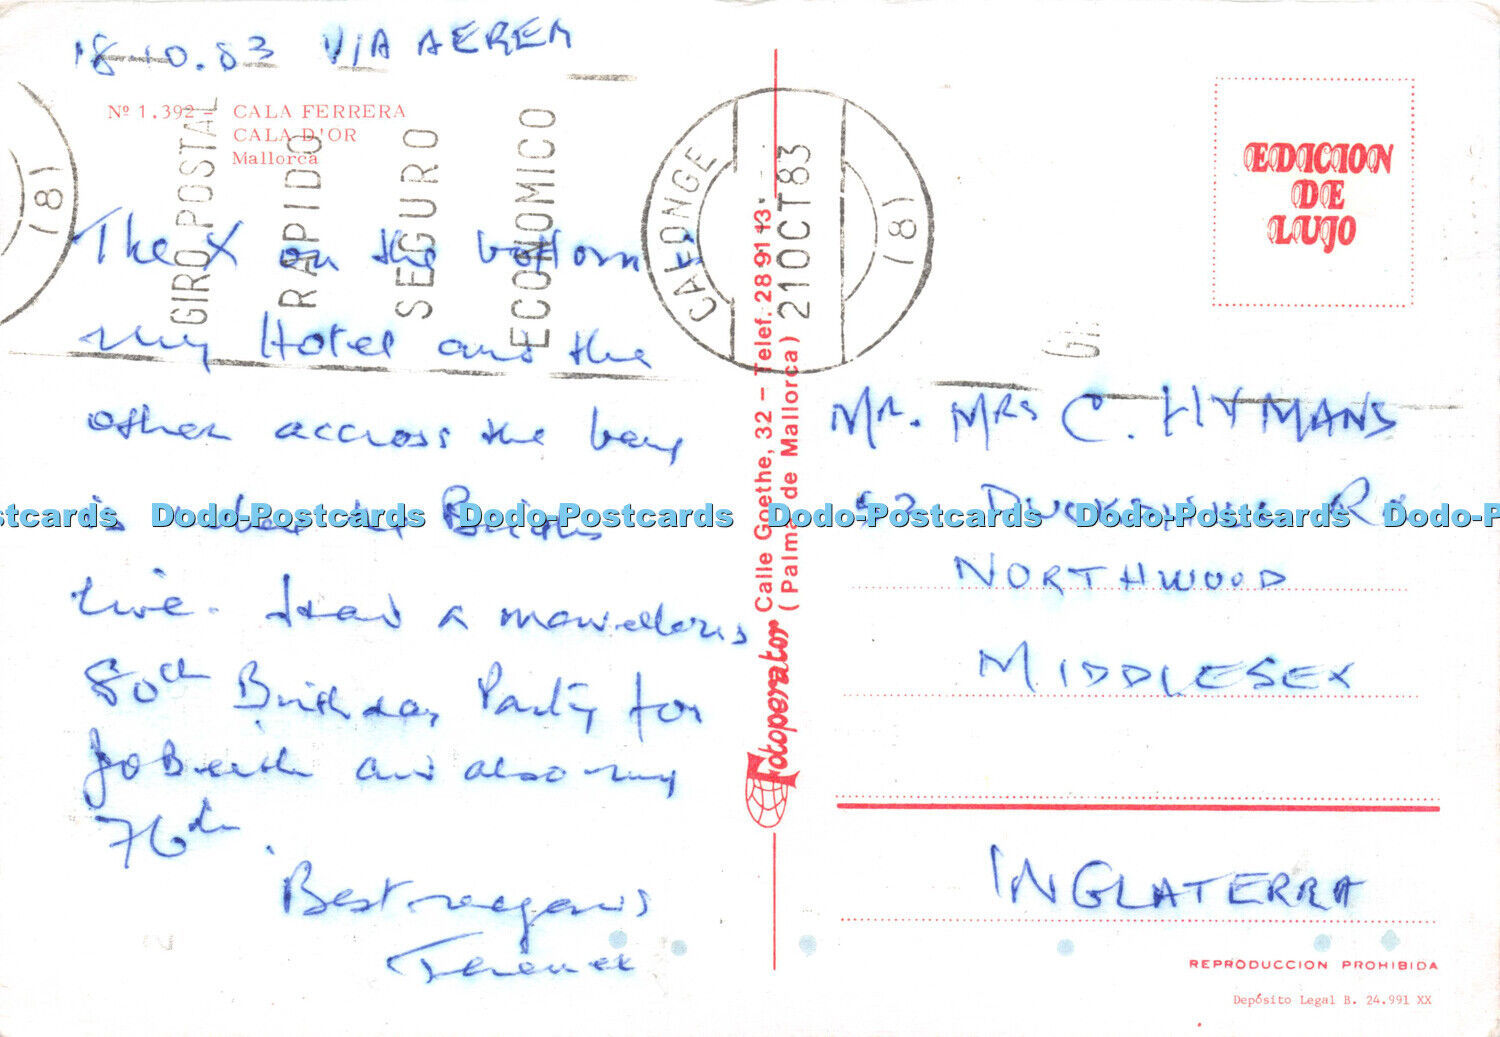 18-10.83 VIA AEREA
Nº 1.392 - CALA FERRERA
CALA D'OR
Mallorca
GIRO POSTAL
RAPIDO
SEGURO
ECONOMICO
CALONGE
21 OCT 83
(81)
(81)
The X on the bottom
my Hotel and the
other accross the bay
is where the
live. Had a marvellous
80th Birthday Party for
and also my
76th.
Best regards
Terence
Fotoperator Calle Goethe, 32 - Telef. 28 91 13.
(Palma de Mallorca)
EDICION
DE
LUJO
MR. MRS C. HYMANS
NORTHWOOD
MIDDLESEX
INGLATERRA
REPRODUCCION PROHIBIDA
Depósito Legal B. 24.991 XX
Dodo-Postcards Dodo-Postcards Dodo-Postcards Dodo-Postcards